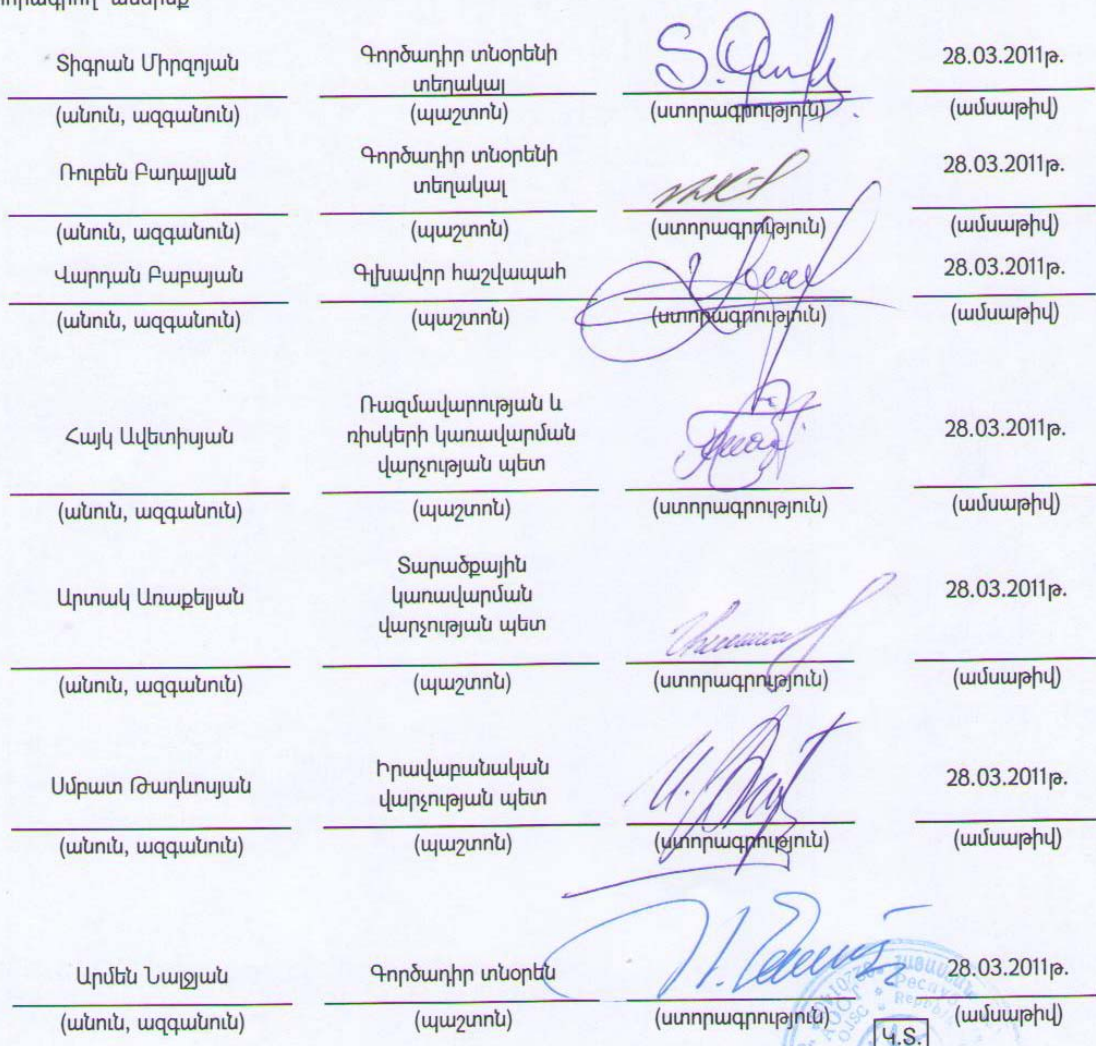 Տիգրան Միրզոյան Գործադիր տնօրենի 28.03.2011թ.
տեղակալ
(անուն, ազգանուն) (պաշտոն) (ստորագրություն) (ամսաթիվ)
Ռուբեն Բադալյան Գործադիր տնօրենի 28.03.2011թ.
տեղակալ
(անուն, ազգանուն) (պաշտոն) (ստորագրություն) (ամսաթիվ)
Վարդան Բաբայան Գլխավոր հաշվապահ 28.03.2011թ.
(անուն, ազգանուն) (պաշտոն) (ստորագրություն) (ամսաթիվ)
Ռազմավարության և
Հայկ Ավետիսյան ռիսկերի կառավարման 28.03.2011թ.
վարչության պետ
(անուն, ազգանուն) (պաշտոն) (ստորագրություն) (ամսաթիվ)
Տարածքային
Արտակ Առաքելյան կառավարման 28.03.2011թ.
վարչության պետ
(անուն, ազգանուն) (պաշտոն) (ստորագրություն) (ամսաթիվ)
Սմբատ Թադևոսյան Իրավաբանական 28.03.2011թ.
վարչության պետ
(անուն, ազգանուն) (պաշտոն) (ստորագրություն) (ամսաթիվ)
Արմեն Նալջյան Գործադիր տնօրեն 28.03.2011թ.
(անուն, ազգանուն) (պաշտոն) (ստորագրություն) (ամսաթիվ)
Կ.Տ.